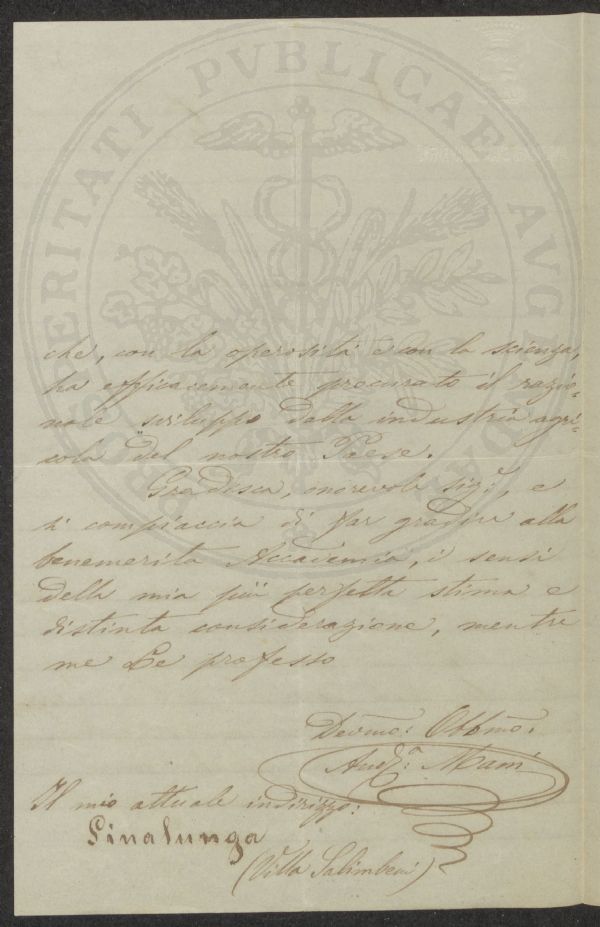 PROSPERITATI PVBLICAE AVGENDAE
che, con la operosità e con la scienza,
ha efficacemente procurato il razio-
nale sviluppo della industria agri-
cola del nostro Paese.
Gradisca, onorevole sigre, e
si compiaccia di far gradire alla
benemerita Accademia, i sensi
della mia più perfetta stima e
distinta considerazione, mentre
me Le professo
Devmo: Obbmo:
Mani
Il mio attuale indirizzo:
Sinalunga
(Villa Salimbeni)